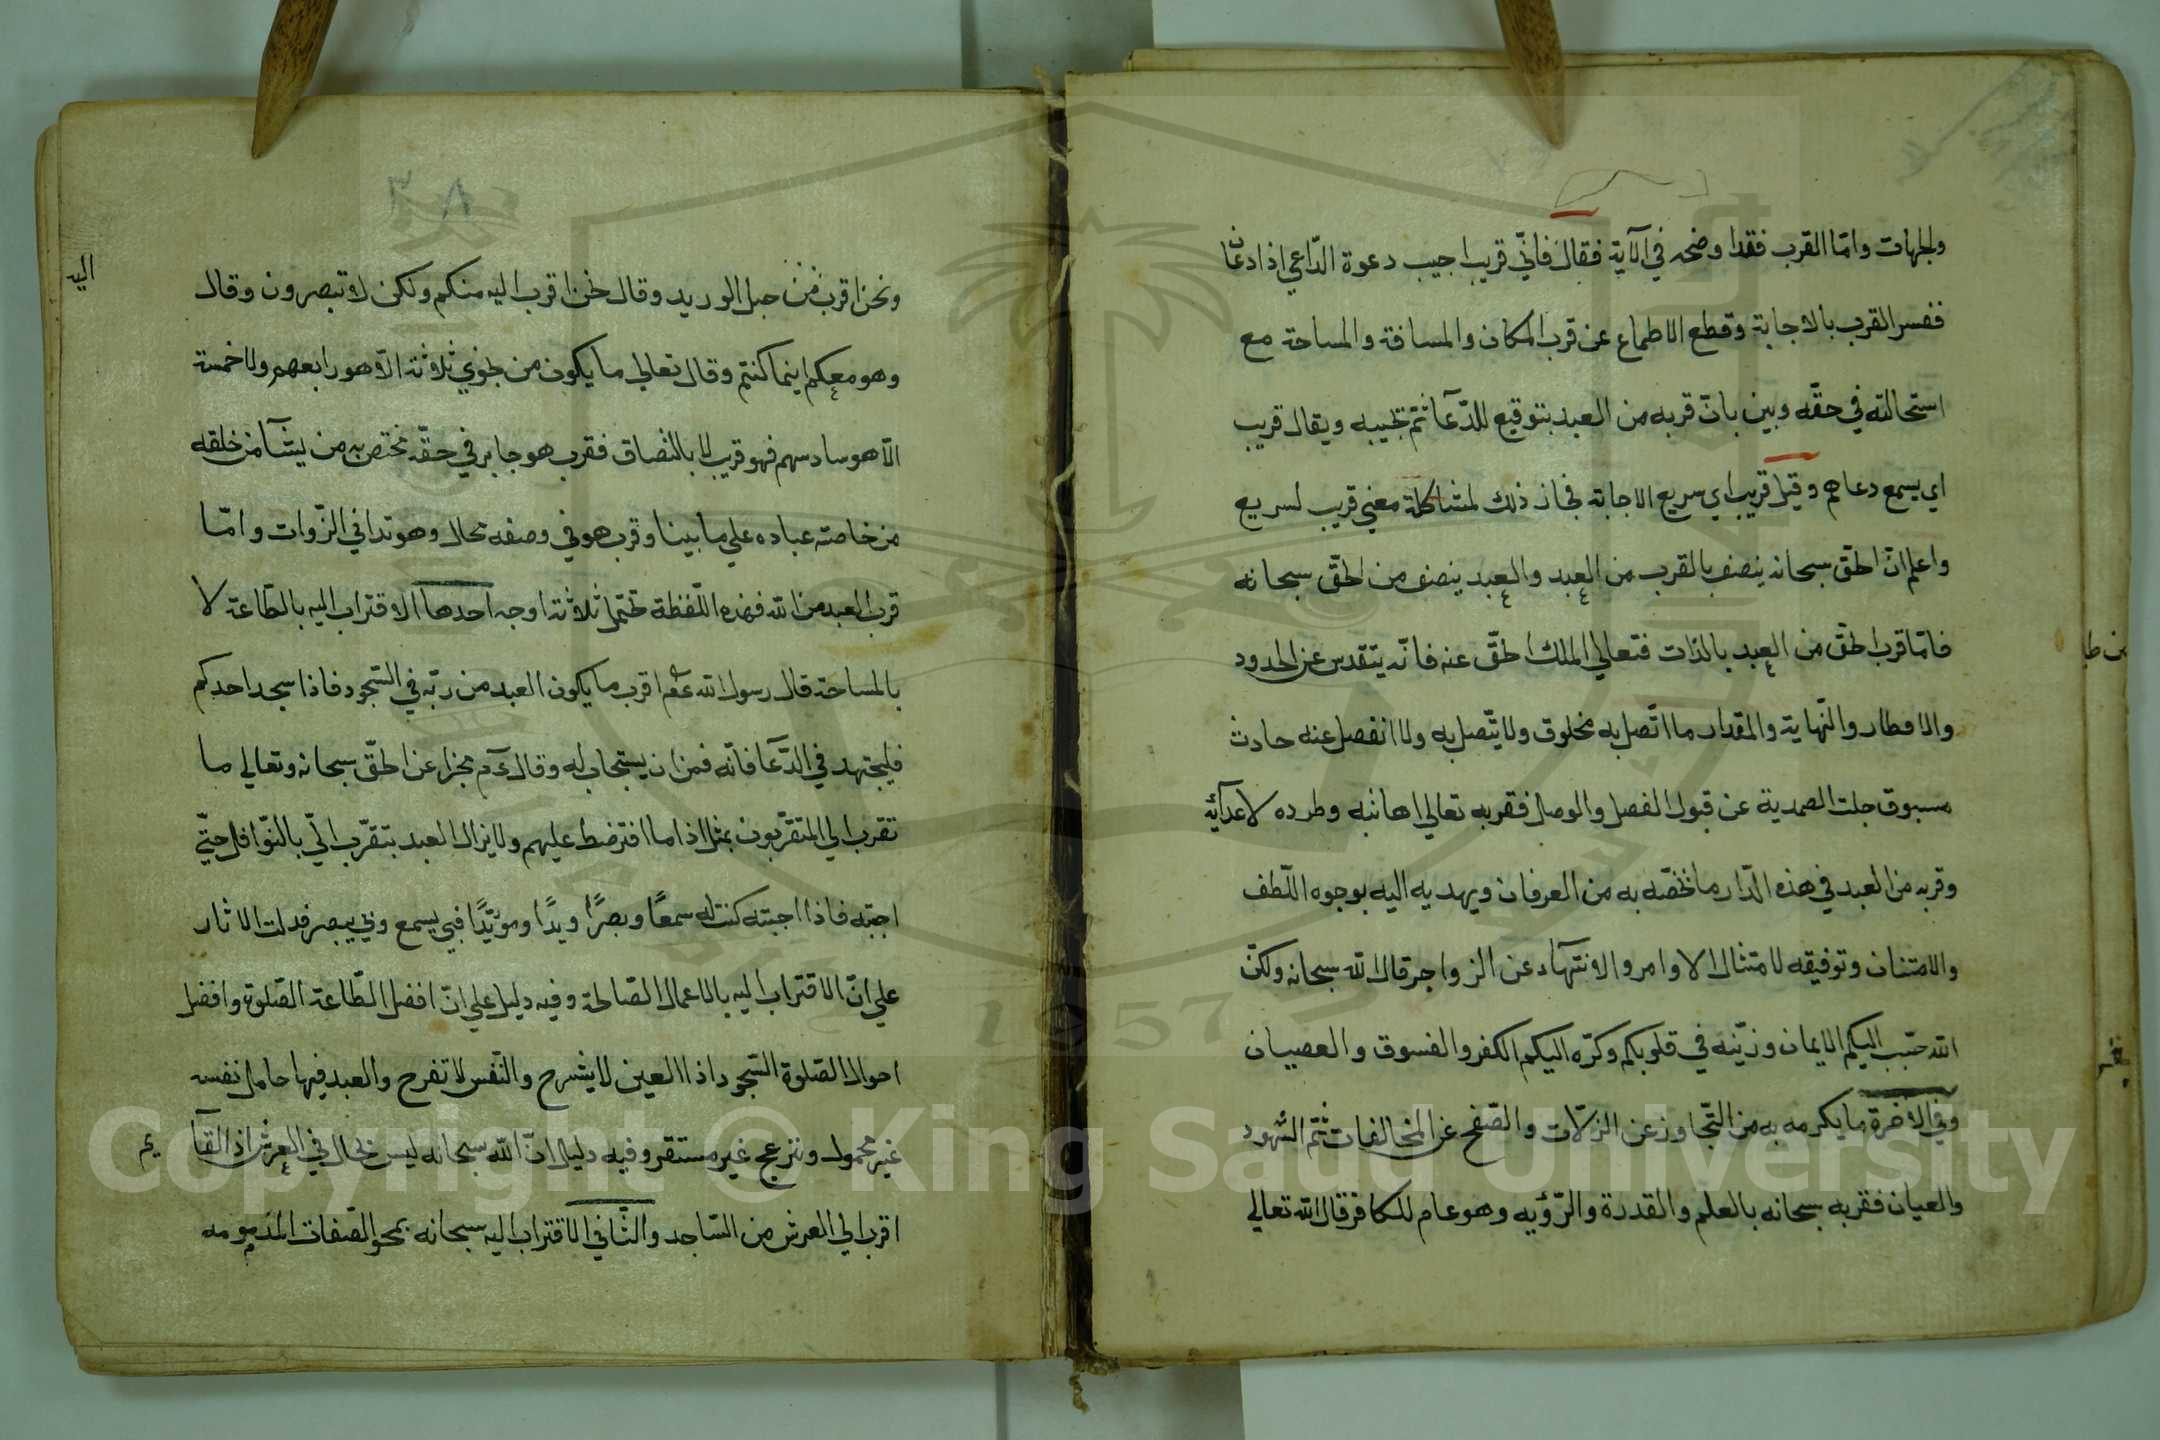 والجهات واما القرب فقد اوضحه في الآية فقال فانّي قريب اجيب دعوة الدّاعي اذا دعان
ففسر القرب بالاجابة وقطع الاطماع عن قرب المكان والمسافة والمساحة مع
استحالته في حقّه وبين بانّ قربه من العبد بتوقيع للدّعآ ثمّ تجيبه ويقال قريب
اي يسمع دعاهم وقيل قريب اي سريع الاجابة فجاز ذلك لمشاكلة معني قريب لسريع
واعلم انّ الحقّ سبحانه يتصف بالقرب من العبد والعبد يتصف من الحقّ سبحانه
فامّا قرب الحقّ من العبد بالذات فتعالي الملك الحقّ عنه فانّه يتقدس عن الحدود
والاقطار والنّهاية والمقدار ما اتّصل به مخلوق ولا يتّصل به ولا انفصل عنه حادث
مسبوق جلت الصمدية عن قبول الفصل والوصل فقربه تعالي اهانبه وطرده لاعدآئه
وقربه من العبد في هذه الدّار ما خصّه به من العرفان ويهديه اليه بوجوه اللّطف
والامتنان وتوفيقه لامتثال الاوامر والانتهاء عن الزواجر قال اللّه سبحانه ولكنّ
اللّه حبّب اليكم الايمان وزيّنه في قلوبكم وكرّه اليكم الكفر والفسوق والعصيان
وفي الاخرة ما يكرمه به من التّجاوز عن الزّلات والصّفح عن المخالفات ثمّ الشهود
والعيان فقربه سبحانه بالعلم والقدرة والرّؤيه وهو عام للكافر قال اللّه تعالي
ونحن اقرب من حبل الوريد وقال نحن اقرب اليه منكم ولكن لا تبصرون وقال
وهو معكم اينما كنتم وقال تعالي ما يكون من نجوي ثلاثة الّا هو رابعهم ولا خمسة
الّا هو سادسهم فهو قريب لا بالتصاق فقرب هو جايز في حقّه مختص به من يشآ من خلقه
من خاصته عباده علي ما بينا وقرب هو في وصفه محال وهو تداني الزّوات وامّا
قرب العبد من اللّه فهذه اللّفظة تحتمل ثلاثة اوجه احدها الاقتراب اليه بالطّاعة لا
بالمساحة قال رسول اللّه عم اقرب ما يكون العبد من ربّه في السّجود فاذا سجد احدكم
فليجتهد في الدّعآ فانّه قمن ان يستجاب له وقال عم مخبرا عن الحقّ سبحانه وتعالي ما
تقرب الي المتقرّبون بمثل اذا ما افترضت عليهم ولا يزال العبد يتقرّب اليّ بالنّوافل حتّي
احبّه فاذا احببته كنت له سمعًا وبصرًا ويدًا ومويّدًا فبي يسمع وبي يبصر فدلت الاثار
علي انّ الاقتراب اليه بالاعمال الصّالحة وفيه دليل علي انّ افضل الطّاعة الصّلوة وافضل
احوال الصّلوة السّجود اذا العين لا يشرح والنّفس لا تفرح والعبد فيها حامل نفسه
غير محمول ونزعج غير مستقر وفيه دليل انّ اللّه سبحانه ليس بحال في العرش اذ القآئم
اقرب الي العرش من السّاجد والثّاني الاقتراب اليه سبحانه بمحو الصّفات المذمومه
اليه